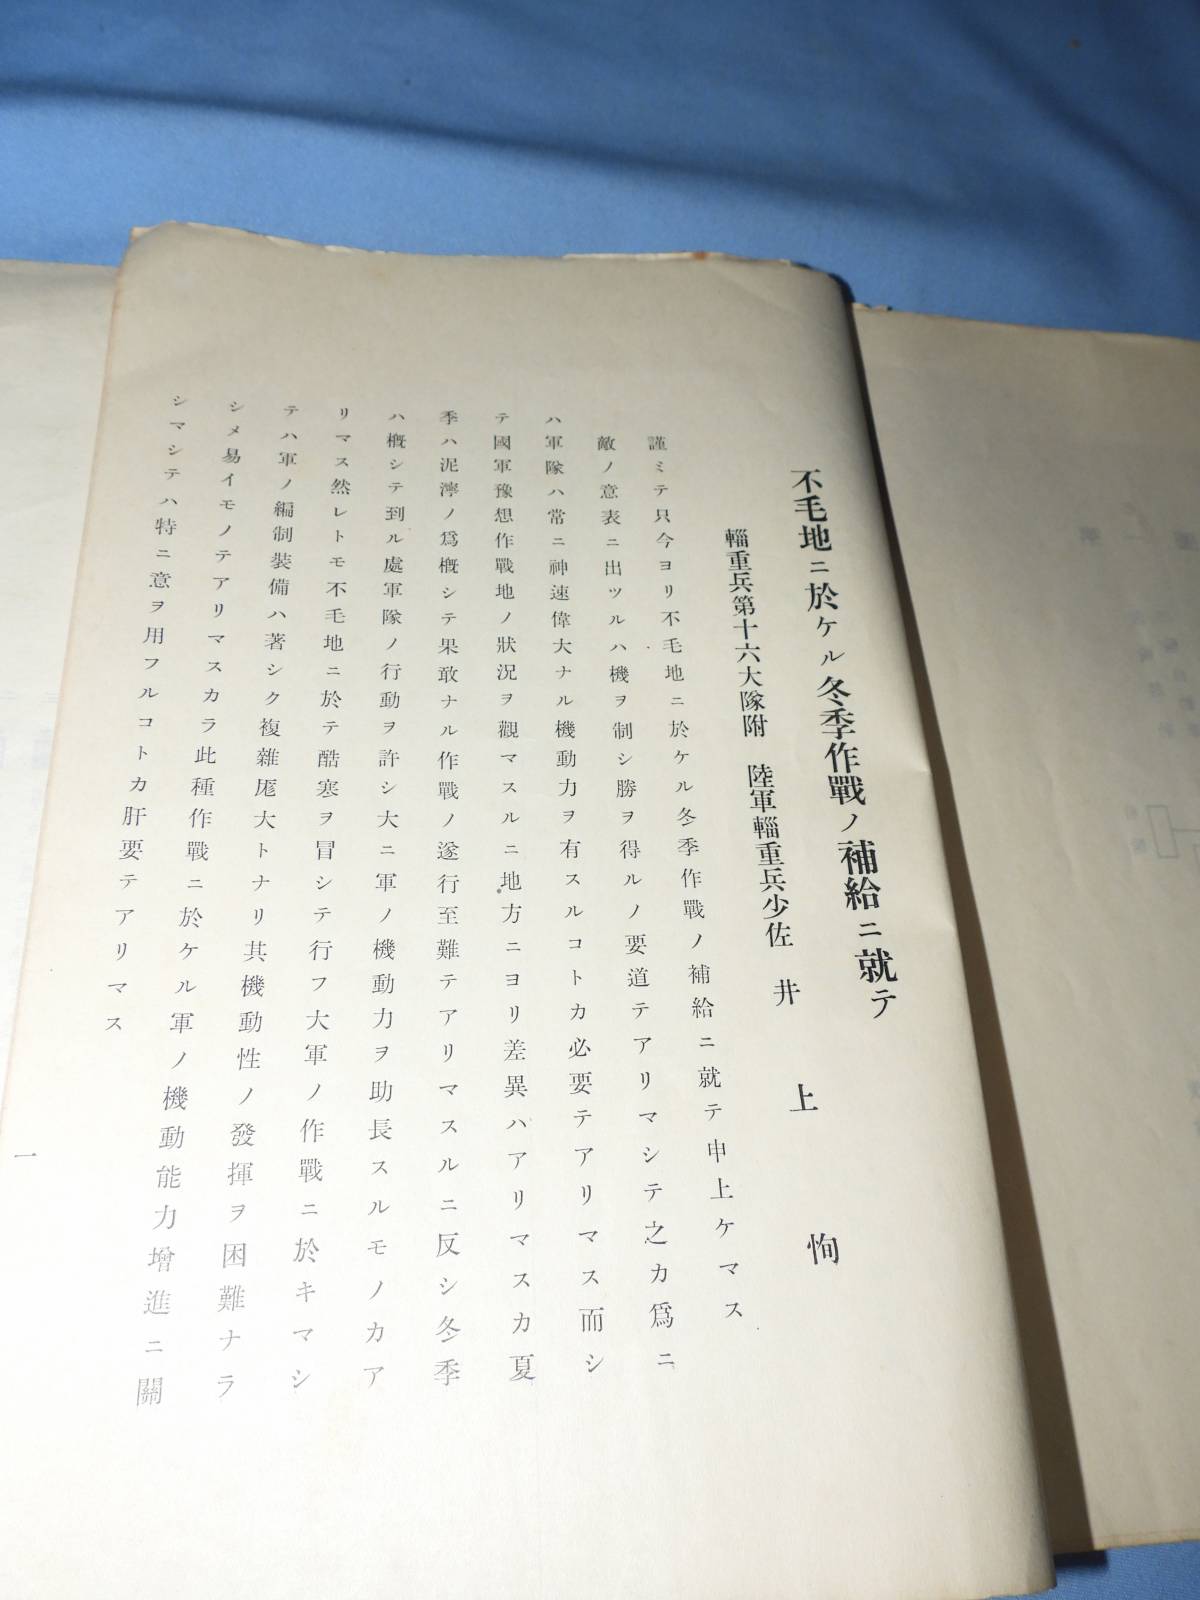 不毛地ニ於ケル冬季作戰ノ補給ニ就テ
輜重兵第十六大隊附 陸軍輜重兵少佐 井上恂
謹ミテ只今ヨリ不毛地ニ於ケル冬季作戰ノ補給ニ就テ申上ケマス
敵ノ意表ニ出ツルハ機ヲ制シ勝ヲ得ルノ要道テアリマシテ之カ爲ニ
ハ軍隊ハ常ニ神速偉大ナル機動力ヲ有スルコトカ必要テアリマス而シ
テ國軍豫想作戰地ノ狀況ヲ觀マスルニ地方ニヨリ差異ハアリマスカ夏
季ハ泥濘ノ爲概シテ果敢ナル作戰ノ遂行至難テアリマスルニ反シ冬季
ハ概シテ到ル處軍隊ノ行動ヲ許シ大ニ軍ノ機動力ヲ助長スルモノカア
リマス然レトモ不毛地ニ於テ酷寒ヲ冒シテ行フ大軍ノ作戰ニ於キマシ
テハ軍ノ編制裝備ハ著シク複雜厖大トナリ其機動性ノ發揮ヲ困難ナラ
シメ易イモノテアリマスカラ此種作戰ニ於ケル軍ノ機動能力增進ニ關
シマシテハ特ニ意ヲ用フルコトカ肝要テアリマス
一